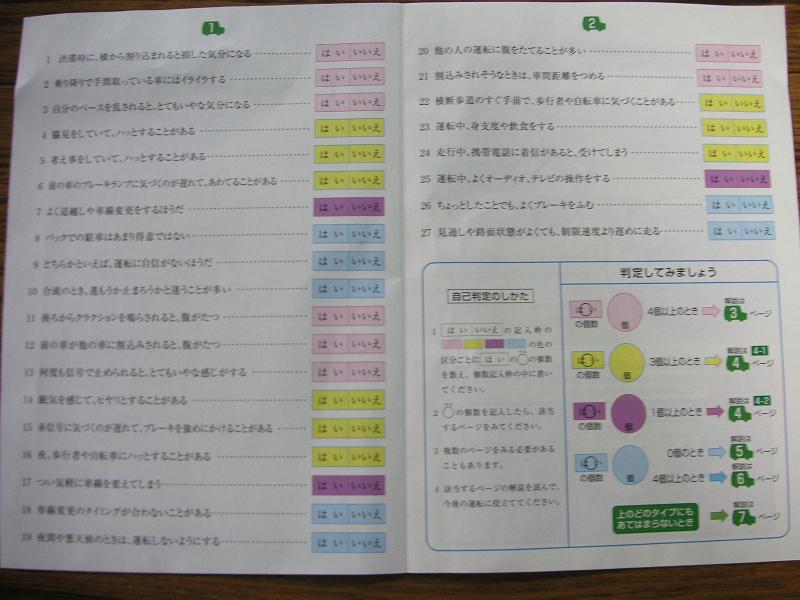 1
1 渋滞時に、横から割り込まれると損した気分になる はい いいえ
2 乗り降りで手間取っている車にはイライラする はい いいえ
3 自分のペースを乱されると、とてもいやな気分になる はい いいえ
4 脇見をしていて、ハッとすることがある はい いいえ
5 考え事をしていて、ハッとすることがある はい いいえ
6 前の車のブレーキランプに気づくのが遅れて、あわてることがある はい いいえ
7 よく追越しや車線変更をするほうだ はい いいえ
8 バックでの駐車はあまり得意ではない はい いいえ
9 どちらかといえば、運転に自信がないほうだ はい いいえ
10 合流のとき、進もうか止まろうかと迷うことが多い はい いいえ
11 後ろからクラクションを鳴らされると、腹がたつ はい いいえ
12 前の車が他の車に割込みされると、腹がたつ はい いいえ
13 何度も信号で止められると、とてもいやな感じがする はい いいえ
14 眠気を感じて、ヒヤリとすることがある はい いいえ
15 赤信号に気づくのが遅れて、ブレーキを強めにかけることがある はい いいえ
16 夜、歩行者や自転車にハッとすることがある はい いいえ
17 つい気軽に車線を変えてしまう はい いいえ
18 車線変更のタイミングが合わないことがある はい いいえ
19 夜間や悪天候のときは、運転しないようにする はい いいえ
2
20 他の人の運転に腹をたてることが多い はい いいえ
21 割込みされそうなときは、車間距離をつめる はい いいえ
22 横断歩道のすぐ手前で、歩行者や自転車に気づくことがある はい いいえ
23 運転中、身支度や飲食をする はい いいえ
24 走行中、携帯電話に着信があると、受けてしまう はい いいえ
25 運転中、よくオーディオ、テレビの操作をする はい いいえ
26 ちょっとしたことでも、よくブレーキをふむ はい いいえ
27 見通しや路面状態がよくても、制限速度より遅めに走る はい いいえ
自己判定のしかた
1 はい いいえ の記入枠の
の色の
区分ごとに はい の○の個数
を数え、個数記入枠の中に書い
てください。
2 ○の個数を記入したら、該当
するページをみてください。
3 複数のページをみる必要がある
こともあります。
4 該当するページの解説を読んで、
今後の運転に役立ててください。
判定してみましょう
はい の個数 個 4個以上のとき 解説は 3 ページ
はい の個数 個 3個以上のとき 解説は 4-1 4 ページ
はい の個数 個 1個以上のとき 解説は 4-2 4 ページ
はい の個数 個 0個のとき 解説は 5 ページ
4個以上のとき 解説は 6 ページ
上のどのタイプにも
あてはまらないとき 解説は 7 ページ